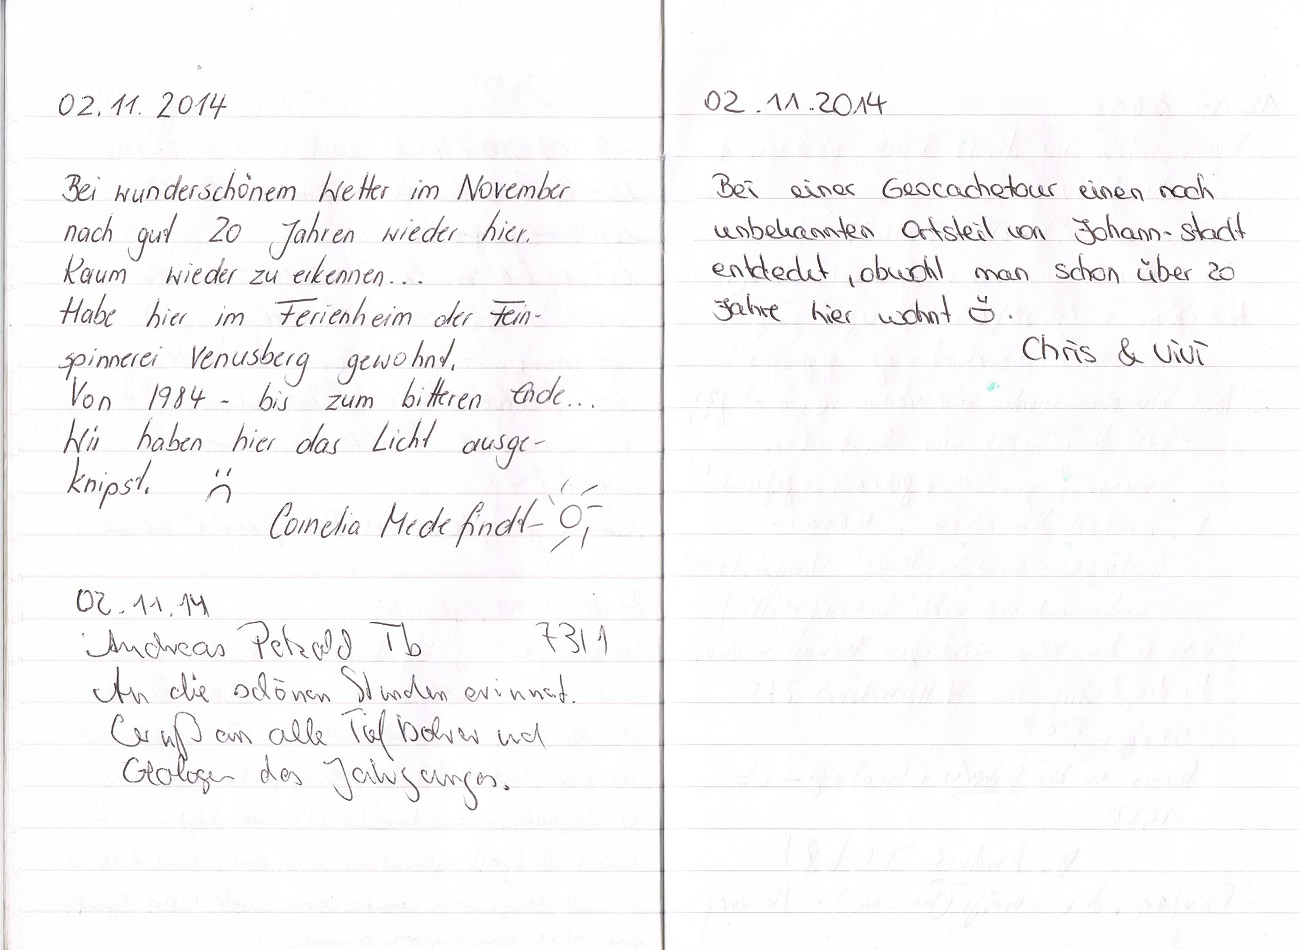 02.11.2014
Bei wunderschönem Wetter im November
nach gut 20 Jahren wieder hier.
Kaum wieder zu erkennen...
Habe hier im Ferienheim der Fein-
spinnerei Venusberg gewohnt.
Von 1984 - bis zum bitteren Ende...
Wir haben hier das Licht ausge-
knipst.
Cornelia Medefindt
02.11.14
Andreas Petzold Tb 73/1
An die schönen Stunden erinnert.
Gruß an alle Tiefbohrer und
Geologen des Jahrganges.
02.11.2014
Bei einer Geocachetour einen noch
unbekannten Ortsteil von Johann-stadt
entdeckt, obwohl man schon über 20
Jahre hier wohnt
Chris & Vivi